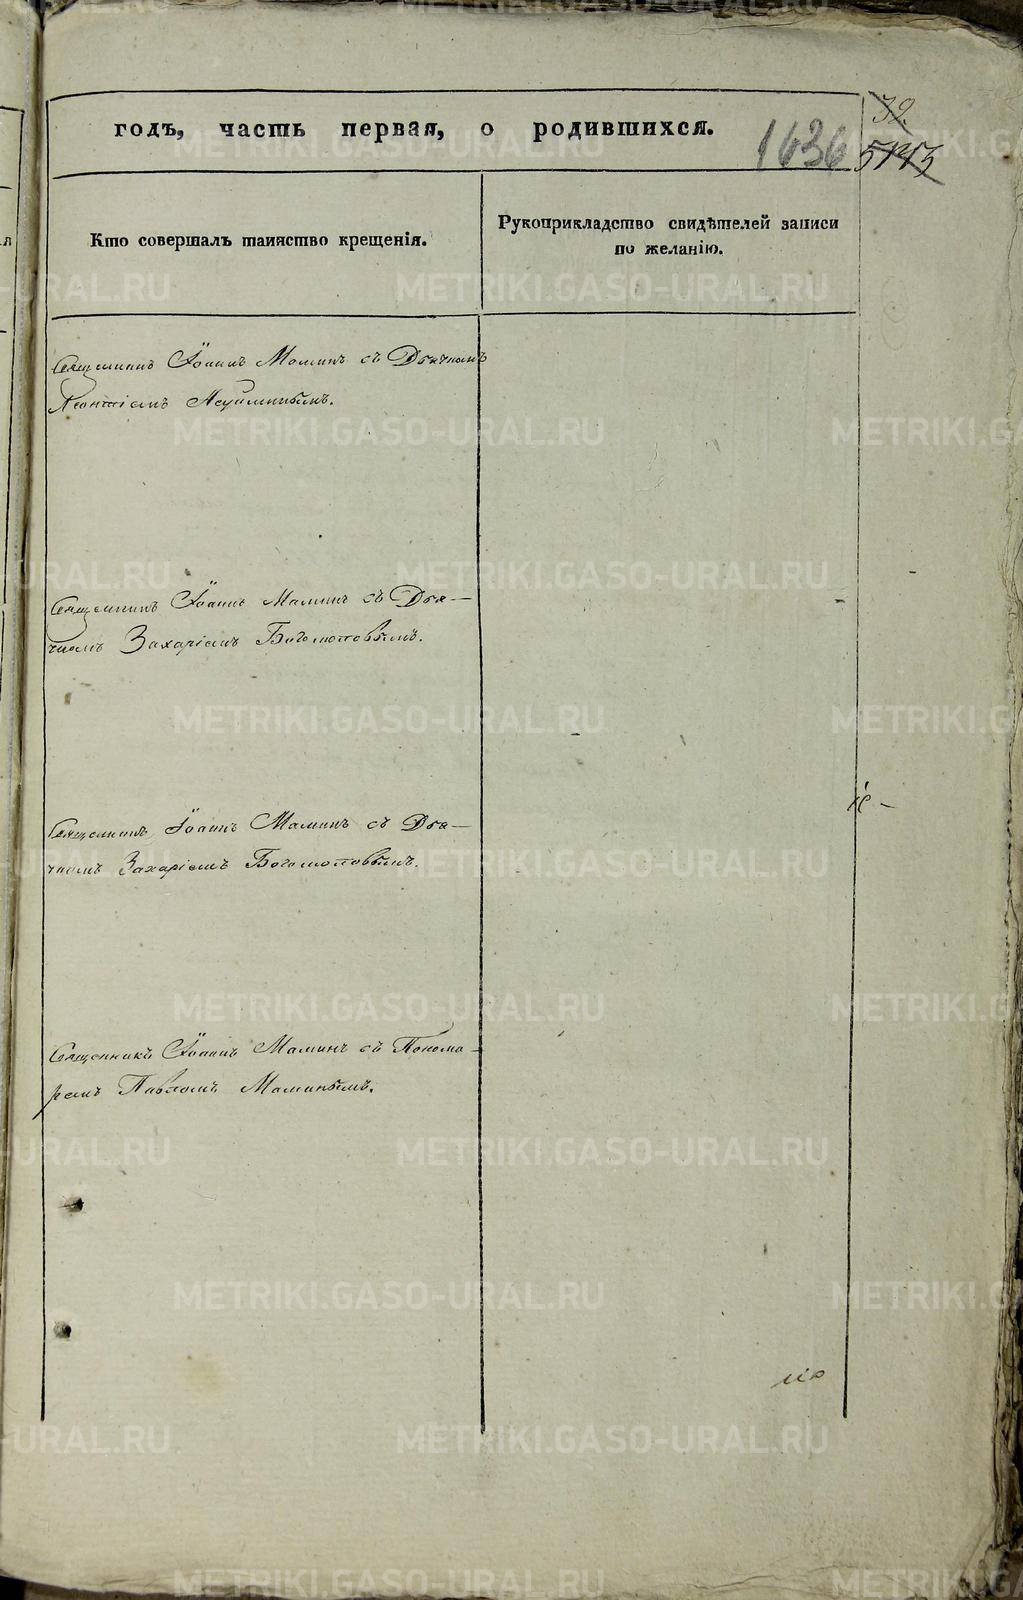 годъ, часть первая, о родившихся.
1636
39.
5113
Кто совершалъ таинство крещенія.
Рукоприкладство свидѣтелей записи
по желанію.
Священникъ Іоаннъ Маминъ съ Дьячкомъ
Леонтіемъ
Священникъ Іоаннъ Маминъ съ Дья-
чкомъ Захаріемъ Богомоловымъ.
Священникъ Іоаннъ Маминъ съ Дья-
чкомъ Захаріемъ Богомоловымъ.
Священникъ Іоаннъ Маминъ съ Понома-
ремъ Павломъ Маминымъ.
METRIKI.GASO-URAL.RU